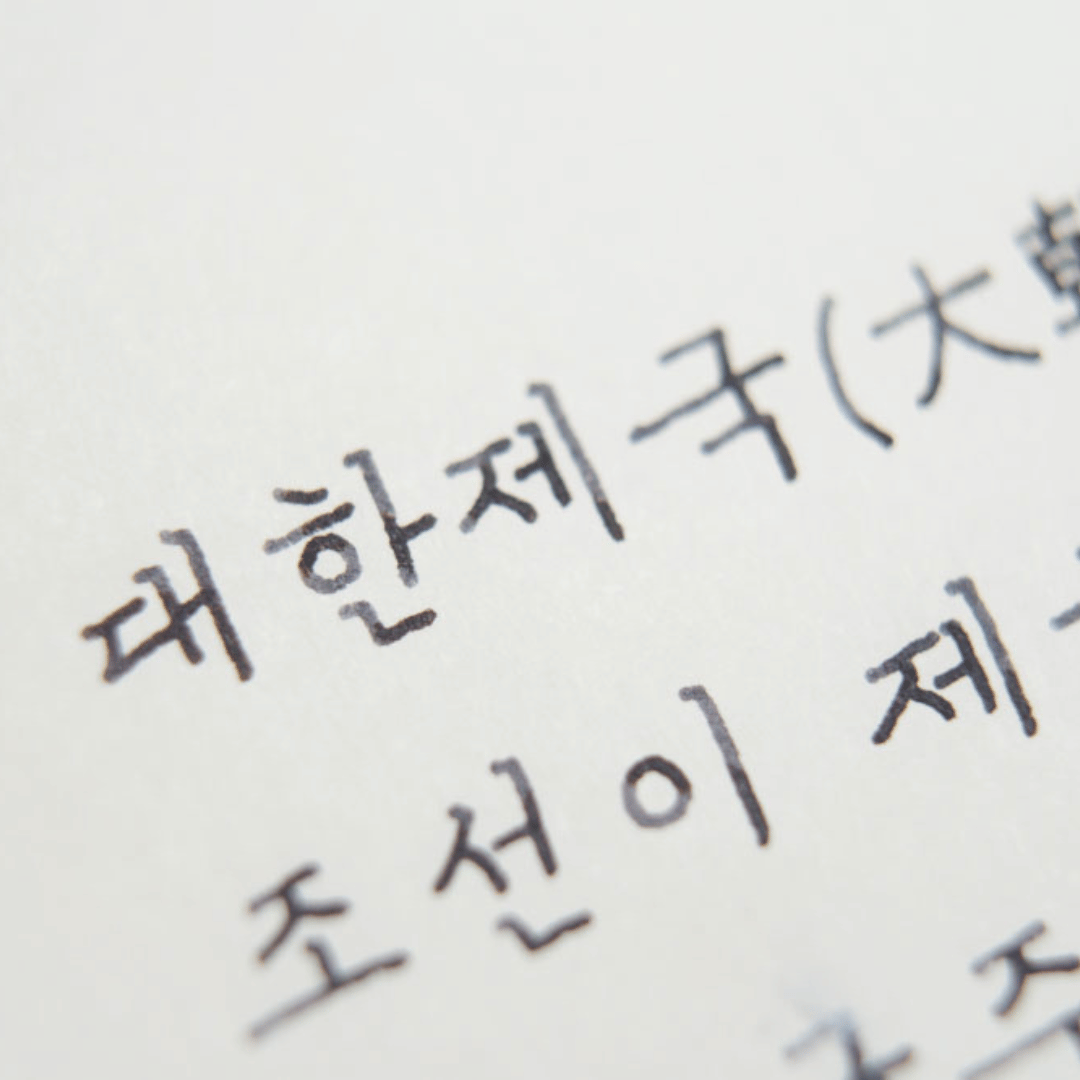 대한제국(大韓
조선이 제